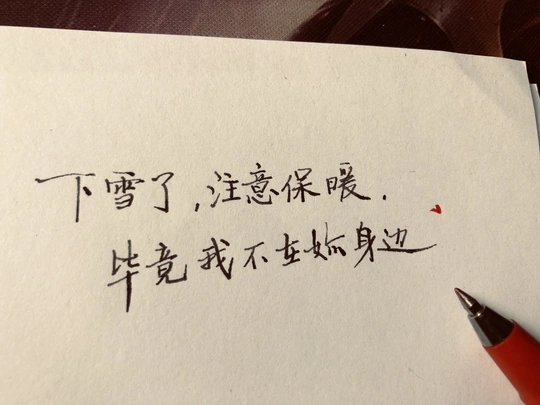 下雪了,注意保暖.
毕竟我不在妳身边